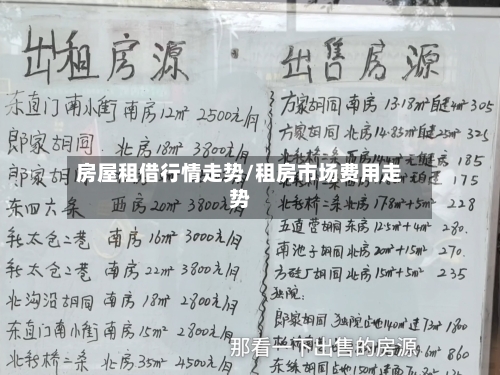 出租房源
东直门南小街 南房12m² 2500元/月
郎家胡同 北房18m² 3800元/月
郎家胡
东四六条 西房20m² 3800元/月
轧太仓二巷 南房16m² 3000元/月
轧太仓二巷 南房22m² 3800元/月
北沟沿胡同 南房18m² 2800元/月
东直门南小街 南房15m² 2800元/月
北新桥二条 北房35m² 4500元/月
出售房源
方家胡同 南房 13.18m²自建4m² 305
方家胡同 北房14.85m²自建25m² 325
185
175
北新桥二条 北房17.8m²+5m² 228
五道营胡同 东房12.5m²+4m² 280.
南池子胡同 北房20m²+15m² 270.
方砖厂胡同 北房15m²+5m² 235
独院:
郎家胡同 独院占地140m²建73m² 1800
860
房屋租借行情走势/租房市场费用走势
那看一下出售的房源